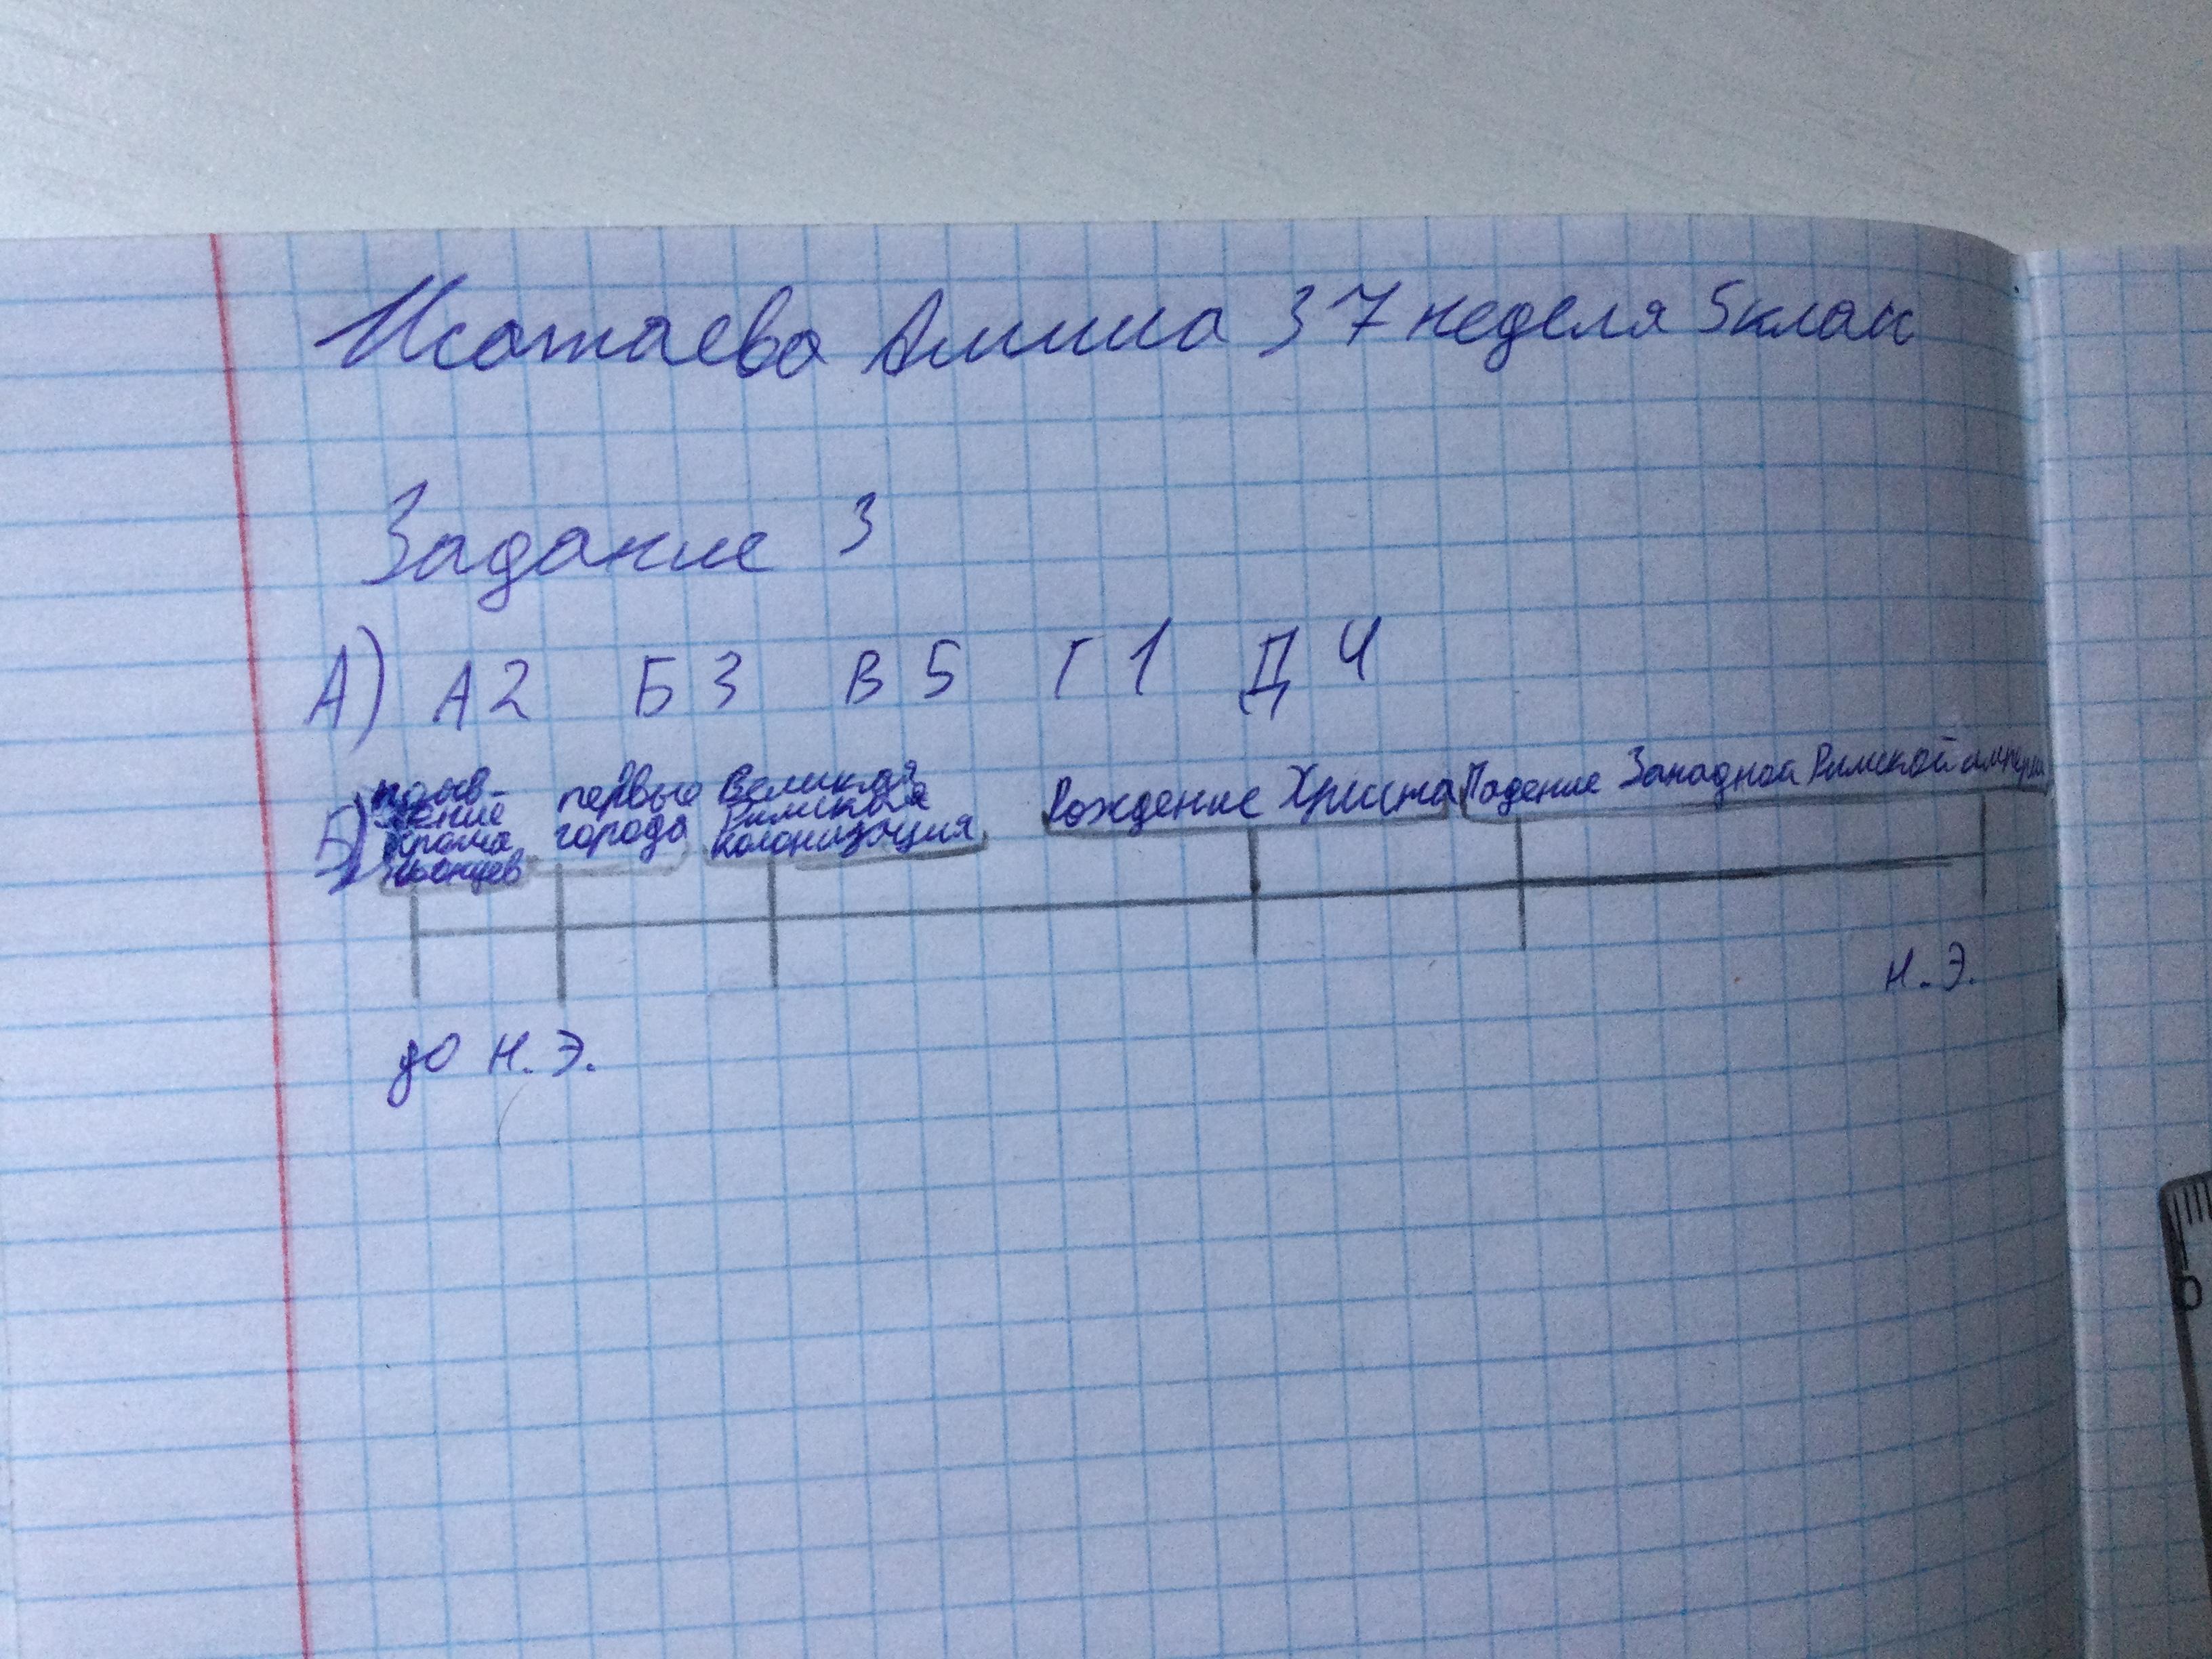 Исатаева Амина 37 неделя 5 класс
Задание 3
А) А2 Б 3 В 5 Г 1 Д 4
Б) появ-
ление
крома
ньонцев
первые
города
Великая
Римская
колонизация
Рождение Христа
Падение Западной Римской империи
до н.э.
н.э.
0